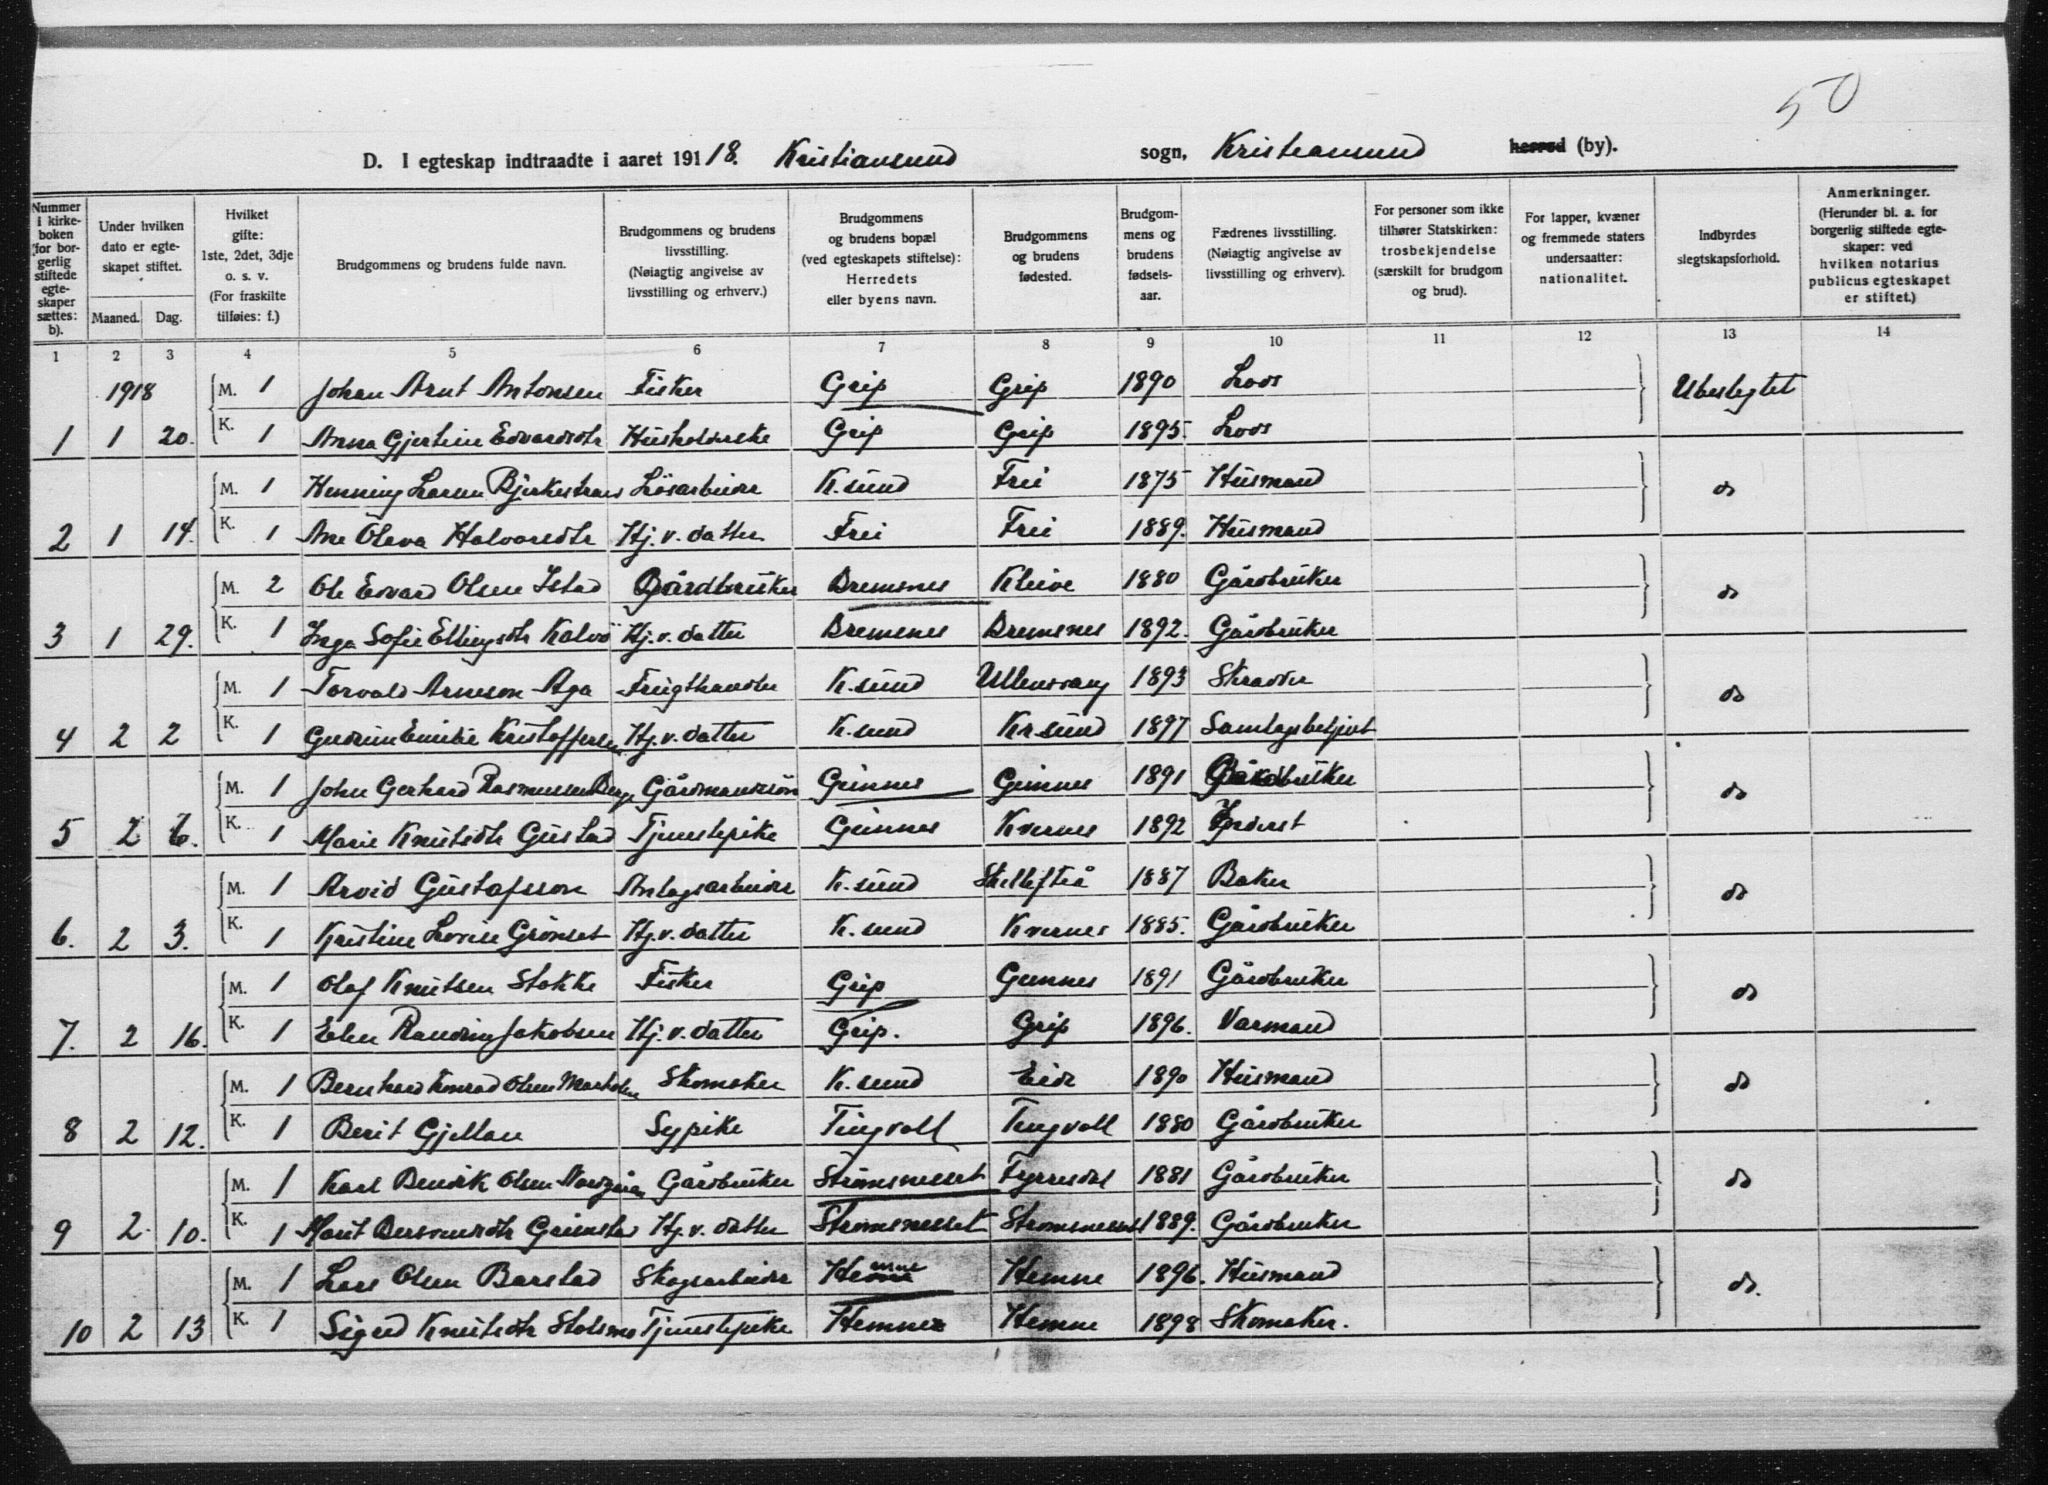 50
D. I egteskap indtraadte i aaret 19118. Kristiansund sogn, Kristiansund herred (by).
Nummer i kirke-boken (for bor-gerlig stiftede egte-skaper sættes: b). Under hvilken dato er egte-skapet stiftet. Maaned. Dag. Hvilket gifte: 1ste, 2det, 3dje o. s. v. (For fraskilte tilføies: f.) Brudgommens og brudens fulde navn. Brudgommens og brudens livsstilling. (Nøiagtig angivelse av livsstilling og erhverv.) Brudgommens og brudens bopæl (ved egteskapets stiftelse): Herredets eller byens navn. Brudgommens og brudens fødested. Brudgom-mens og brudens fødsels-aar. Fædrenes livsstilling. (Nøiagtig angivelse av livsstilling og erhverv). For personer som ikke tilhører Statskirken: trosbekjendelse (særskilt for brudgom og brud). For lapper, kvæner og fremmede staters undersaatter: nationalitet. Indbyrdes slegtskapsforhold. Anmerkninger. (Herunder bl. a. for borgerlig stiftede egte-skaper: ved hvilken notarius publicus egteskapet er stiftet.)
1 2 3 4 5 6 7 8 9 10 11 12 13 14
1918 M. 1 Johan Arnt Antonsen Fisker Grip Grip 1890 Lods Ubeslegtet
1 1 20. K. 1 Anna Gjertine Edvardsdtr Husholderske Grip Grip 1895. Lods
M. 1 Henning Larsen Bjerkestrand Løsarbeider K.sund Frei 1875 Husmand do
2 1 14. K. 1 Ane Olava Halvorsdtr Hj.v. datter Frei Frei 1889. Husmand
M. 2 Ole Edvard Olsen Istad Gårdbruker Bremsnes Kleive 1880 Gårdbruker do
3 1 29. K. 1 Inga Sofie Ellingsdtr Kalvö Hj.v. datter Bremsnes Bremsnes 1892. Gårdbruker
M. 1 Torvald Arneson Aga Frugthandler K.sund Ullensvang 1893 Skrædder do
4 2 2 K. 1 Gudrun Emilie Kristoffersen Hj.v. datter K.sund Kr.sund 1897 Samlagsbetjent
M. 1 John Gerhard Rasmussen Berge Gårdmandssön Gimnes Gimnes 1891 Gårdbruker do
5 2 6. K. 1 Marie Knutsdtr Gustad Tjenestepike Gimnes Kvernes 1892 Inderst
M. 1 Arvid Gustafsson Anlagsarbeider K.sund Skellefteå 1887 Baker do
6. 2 3. K. 1 Kristine Lovise Grönset Hj.v. datter K.sund Kvernes 1885. Gårdbruker
M. 1 Olaf Knutsen Stokke Fisker Grip Gimnes 1891 Gårdbruker do
7. 2 16. K. 1 Elen Raudine Jakobsen Hj.v. datter Grip. Grip 1896. Varmand
M. 1 Bernhard Konrad Olsen Skomaker K.sund Eide 1890 Husmand do
8 2 12. K. 1 Berit Gjellan Sypike Tingvoll Tingvoll 1880 Gårdbruker
M. 1 Karl Bendik Olsen Gårdbruker Strömsnesset Fyrresdal 1881 Gårdbruker do
9 2 10. K. 1 Marit Bersvendsdtr Grimstad Hj.v. datter Strömsnesset Strömsnesset 1889. Gårdbruker
M. 1 Lars Olsen Barstad Skogsarbeider Hemne Hemne 1896. Husmand do.
10 2 13 K. 1 Sigrid Knutsdtr Stolsnes Tjenestepike Hemne Hemne 1898 Skomaker.